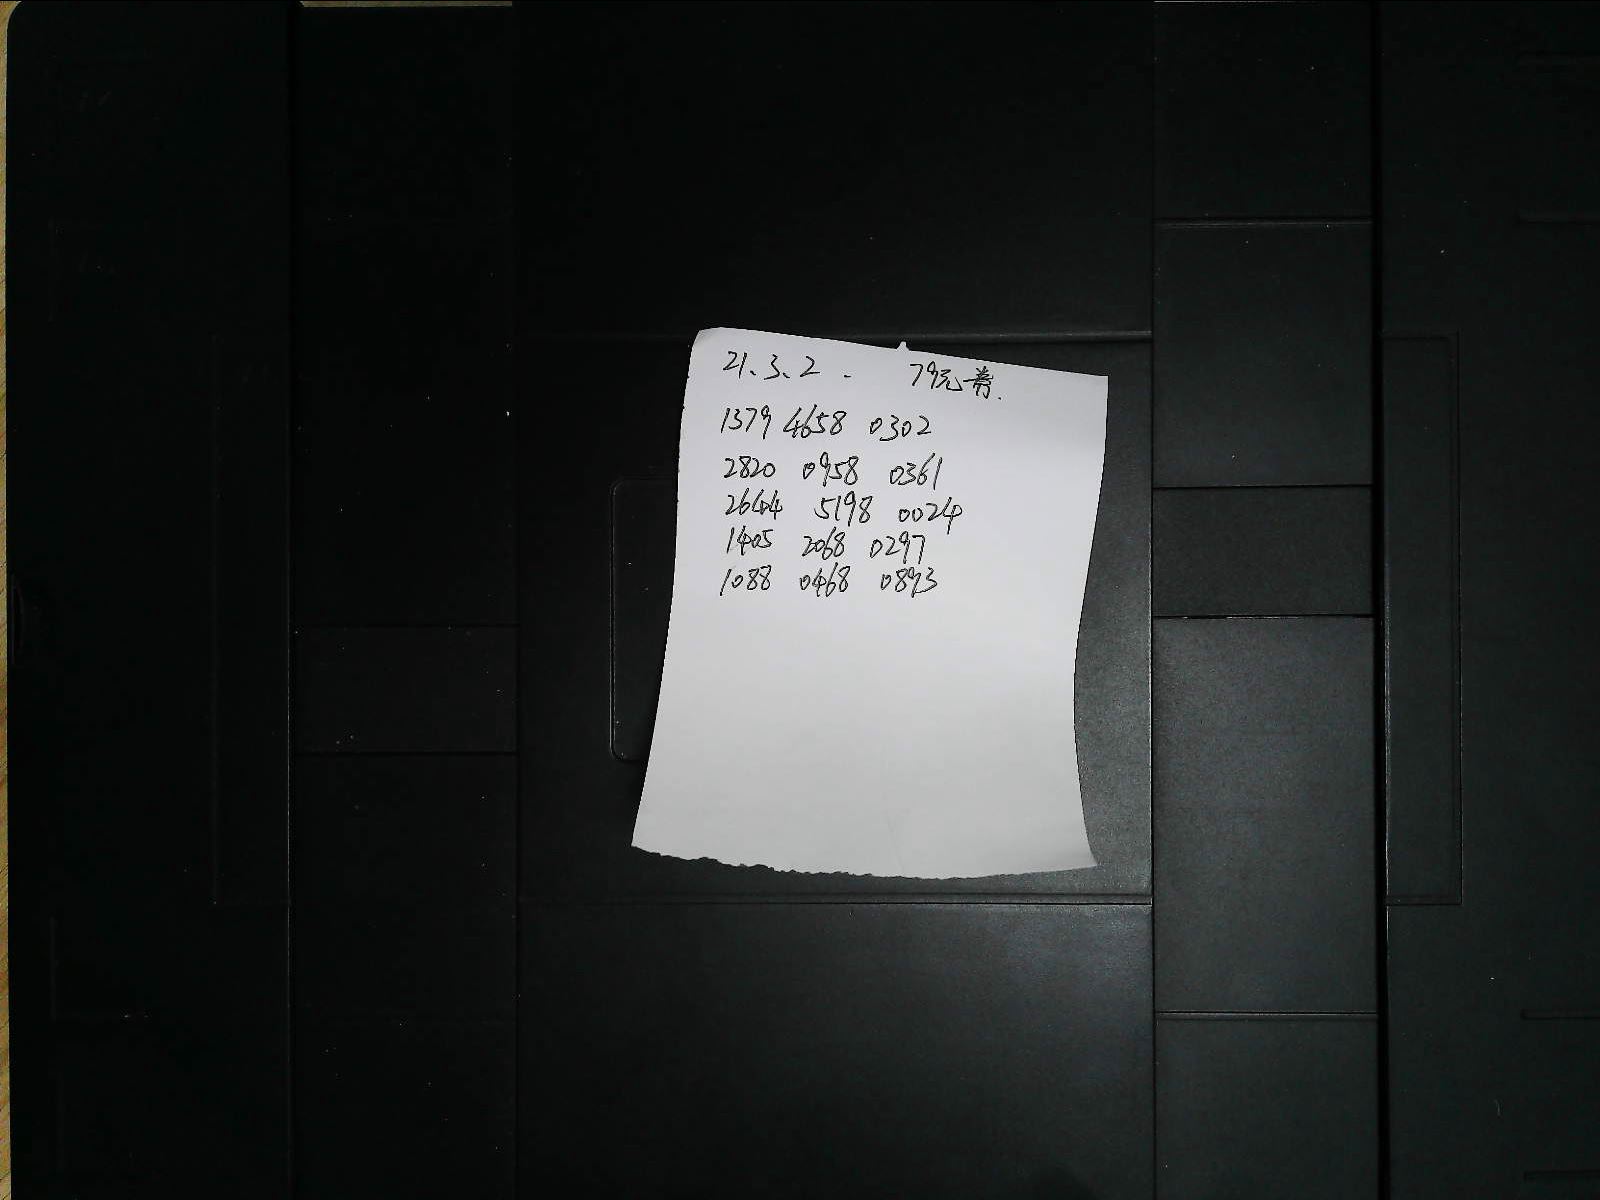 21、3、2. 79元券.
1379 4658 0302
2820 0958 0361
2644 5198 0024
1405 2068 0297
1088 0468 0893